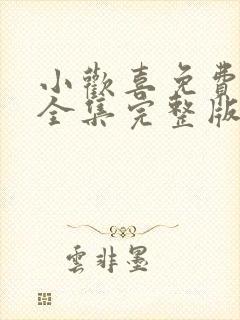 小歡喜免費
全集完整版
雲非墨